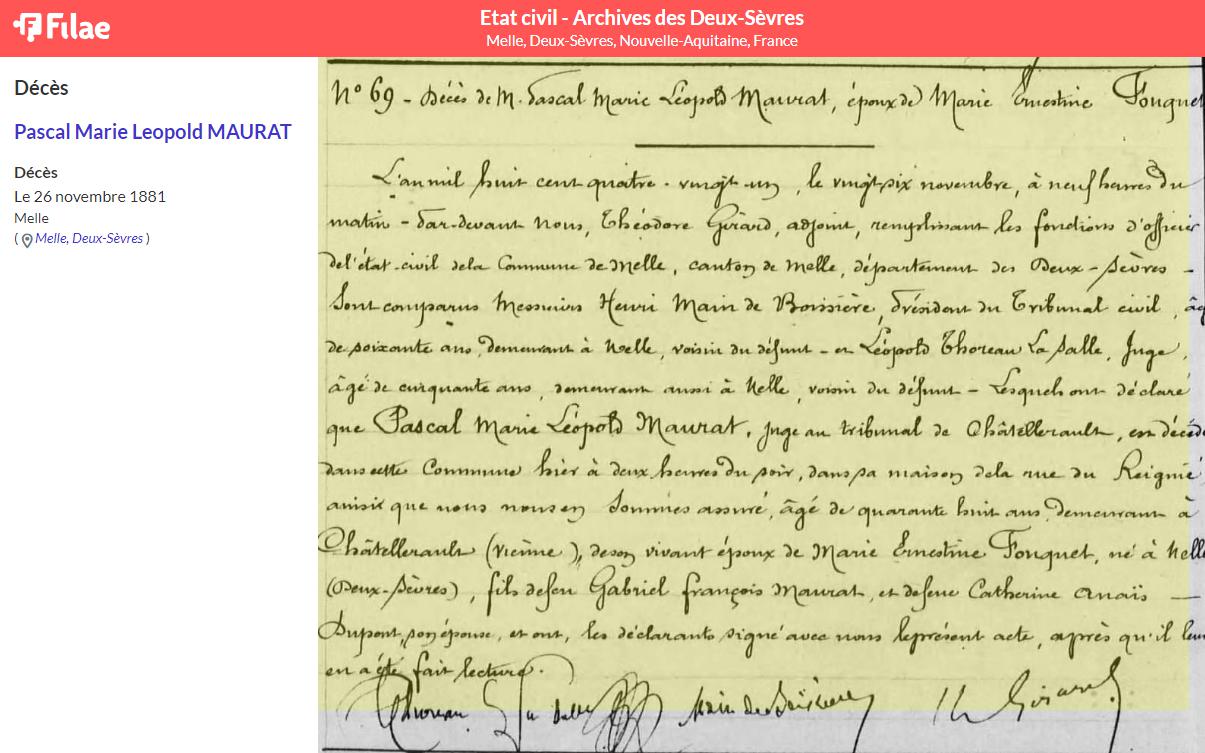 Filae
Etat civil - Archives des Deux-Sèvres
Melle, Deux-Sèvres, Nouvelle-Aquitaine, France
Décès
Pascal Marie Leopold MAURAT
Décès
Le 26 novembre 1881
Melle
( Melle, Deux-Sèvres )
No 69 - Décès de M. Pascal Marie Léopold Maurat, époux de Marie Ernestine Fouquet
L'an mil huit cent quatre-vingt-un, le vingt six novembre, à neuf heures du
matin - Par-devant Nous, Théodore Girard, adjoint, remplissant les fonctions d'officier
de l'état-civil de la Commune de Melle, canton de Melle, département des Deux-Sèvres -
Sont comparus Messieurs Henri Main de Boissière, Président du Tribunal civil, âg
de soixante ans, demeurant à Melle, voisin du défunt - et Léopold Thoreau La Salle, Juge,
âgé de cinquante ans, demeurant aussi à Melle, voisin du défunt - Lesquels ont déclaré
que Pascal Marie Léopold Maurat, Juge au tribunal de Châtellerault, est décédé
dans cette Commune hier à deux heures du soir, dans sa maison de la rue du Reignié
ainsi que nous nous en sommes assuré, âgé de quarante huit ans, demeurant à
Châtellerault (Vienne), de son vivant époux de Marie Ernestine Fouquet, né à Melle
(Deux-Sèvres), fils de feu Gabriel François Maurat, et de feue Catherine Anaïs —
Dupont, son épouse, et ont, les déclarants signé avec nous le présent acte, après qu'il leur
en a été fait lecture.
Thoreau La Salle Main de Boissière Th Girard